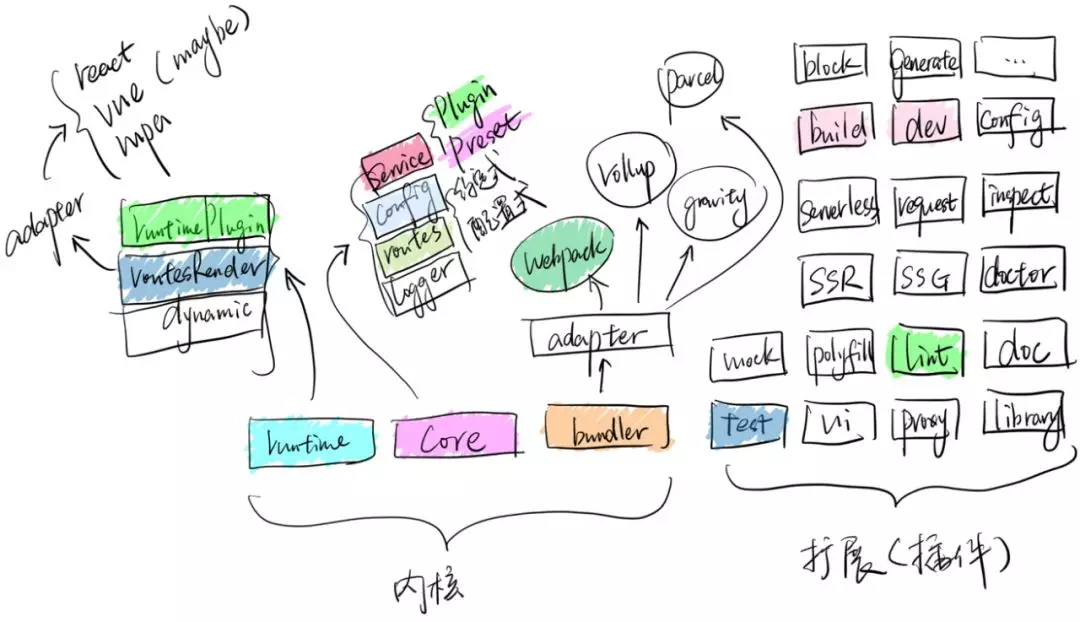 react
vue (maybe)
mpa
adapter
runtime Plugin
routesRender
dynamic
Plugin
Preset
Service
config
routes
logger
约定式
配置式
parcel
rollup
gravity
webpack
adapter
runtime
Core
bundler
内核
block
generate
...
build
dev
config
serverless
request
inspect
SSR
SSG
doctor
mock
polyfill
lint
doc
test
ui
proxy
library
扩展(插件)